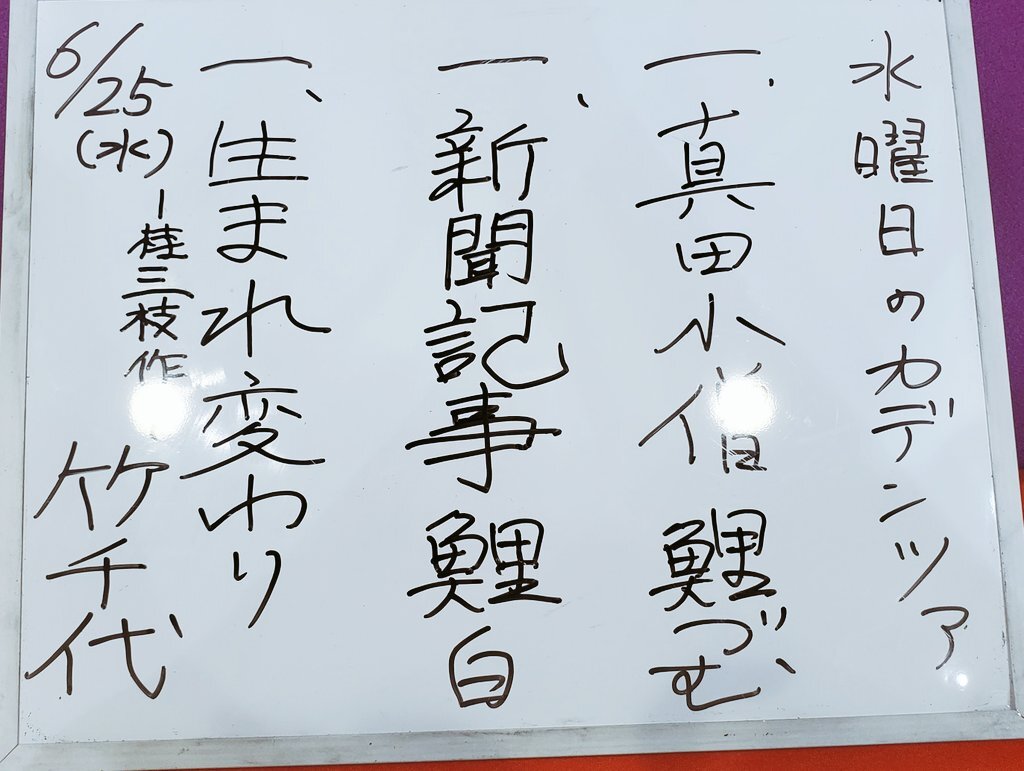 水曜日のカデンツァ
一、真田小僧 鯉づむ
一、新聞記事 鯉白
一、生まれ変わり 竹千代
－桂三枝作
6/25
(水)